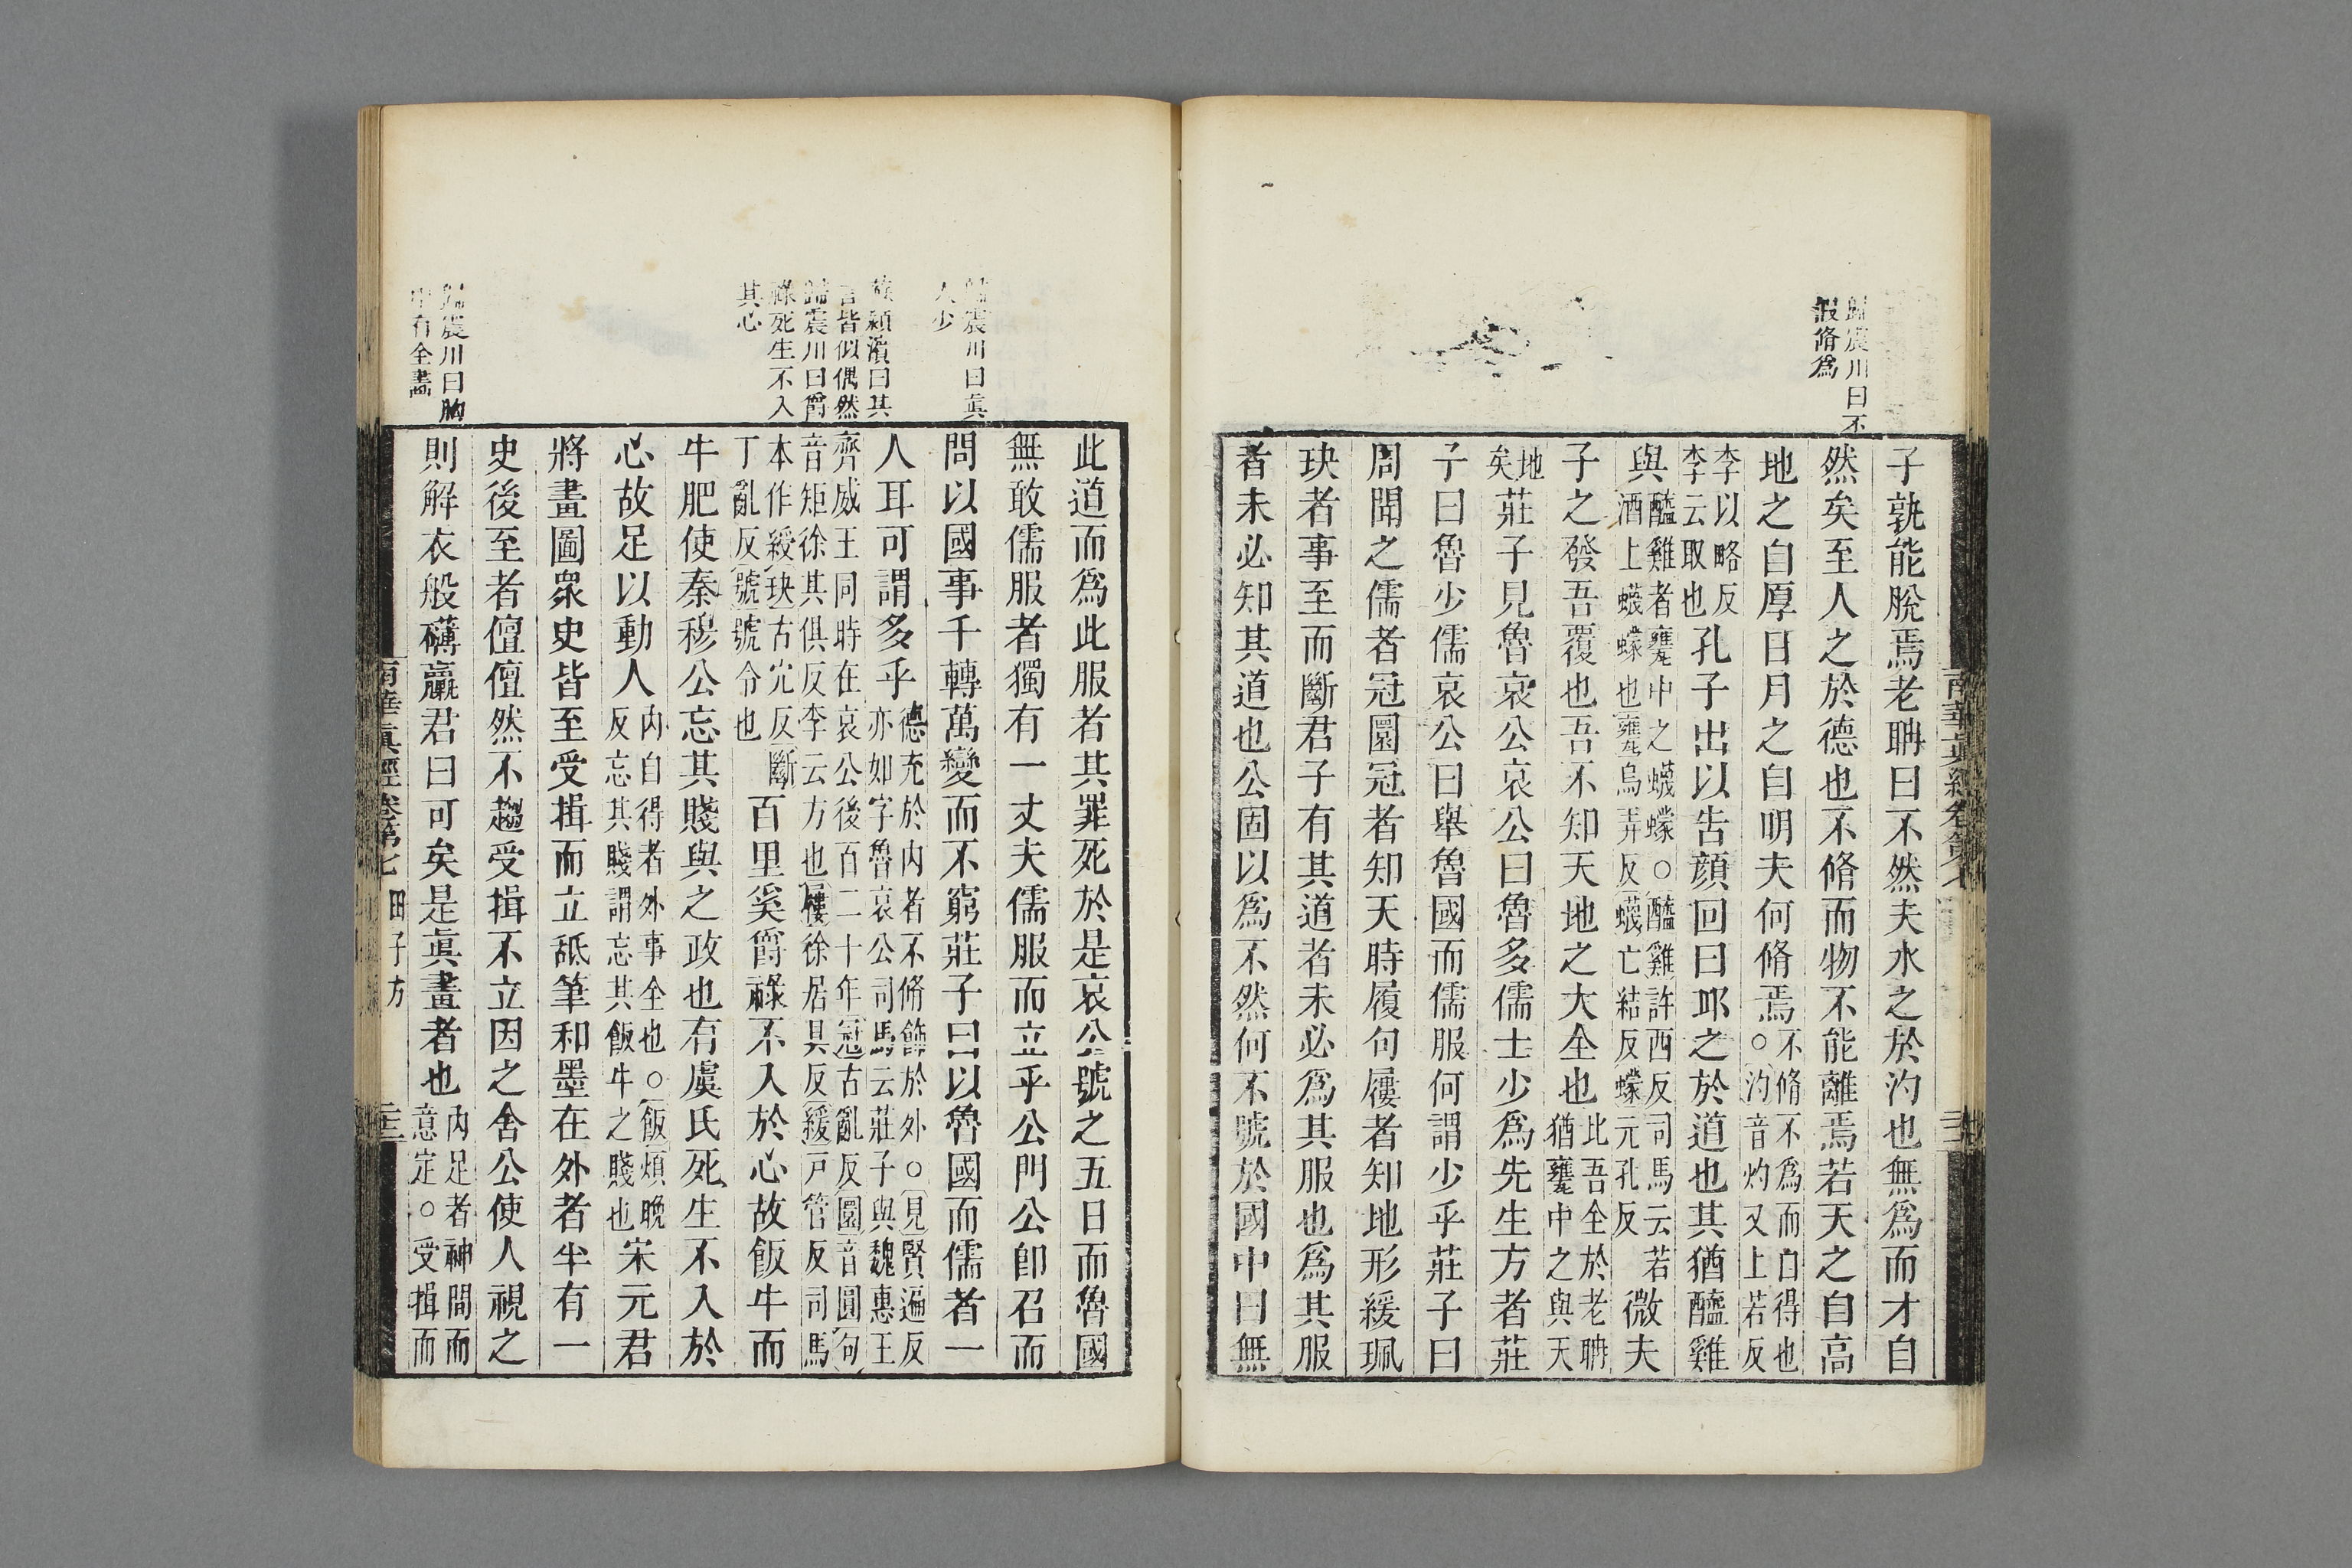 歸震川曰不
假脩爲
子孰能脫焉老聃曰不然夫水之於汋也無爲而才自
然矣至人之於德也不脩而物不能離焉若天之自高
地之自厚日月之自明夫何脩焉不脩不爲而自得也○汋音灼又上若反
李以略反李云取也孔子出以告顔回曰邱之於道也其猶醯雞
與醯雞者甕中之蠛蠓○醯雞許西反司馬云若酒上蠛蠓也甕烏弄反蠛亡結反蠓元孔反微夫
子之發吾覆也吾不知天地之大全也此吾全於老聃猶甕中之與天
地矣莊子見魯哀公哀公曰魯多儒士少爲先生方者莊
子曰魯少儒哀公曰舉魯國而儒服何謂少乎莊子曰
周聞之儒者冠圜冠者知天時履句屨者知地形緩珮
玦者事至而斷君子有其道者未必爲其服也爲其服
者未必知其道也公固以爲不然何不號於國中曰無
南華眞經卷第七
歸震川曰眞
人少
蘇潁濱曰其
言皆似偶然
歸震川曰爵
祿死生不入
其心
歸震川曰胸
中有全畵
此道而爲此服者其罪死於是哀公號之五日而魯國
無敢儒服者獨有一丈夫儒服而立乎公門公卽召而
問以國事千轉萬變而不窮莊子曰以魯國而儒者一
人耳可謂多乎德充於内者不脩飾於外○見賢遍反亦如字魯哀公司馬云莊子與魏惠王
齊威王同時在哀公後百二十年冠古亂反圜音圓句音矩徐其俱反李云方也屨徐居具反緩戸管反司馬
本作綬玦古宂反斷丁亂反號號令也百里奚爵祿不入於心故飯牛而
牛肥使秦穆公忘其賤與之政也有虞氏死生不入於
心故足以動人内自得者外事全也○飯煩晚反忘其賤謂忘其飯牛之賤也宋元君
將畫圖衆史皆至受揖而立舐筆和墨在外者半有一
史後至者儃儃然不趨受揖不立因之舍公使人視之
則解衣般礴臝君曰可矣是眞畫者也内足者神閒而意定○受揖而
南華眞經卷第七 田子方 三十二